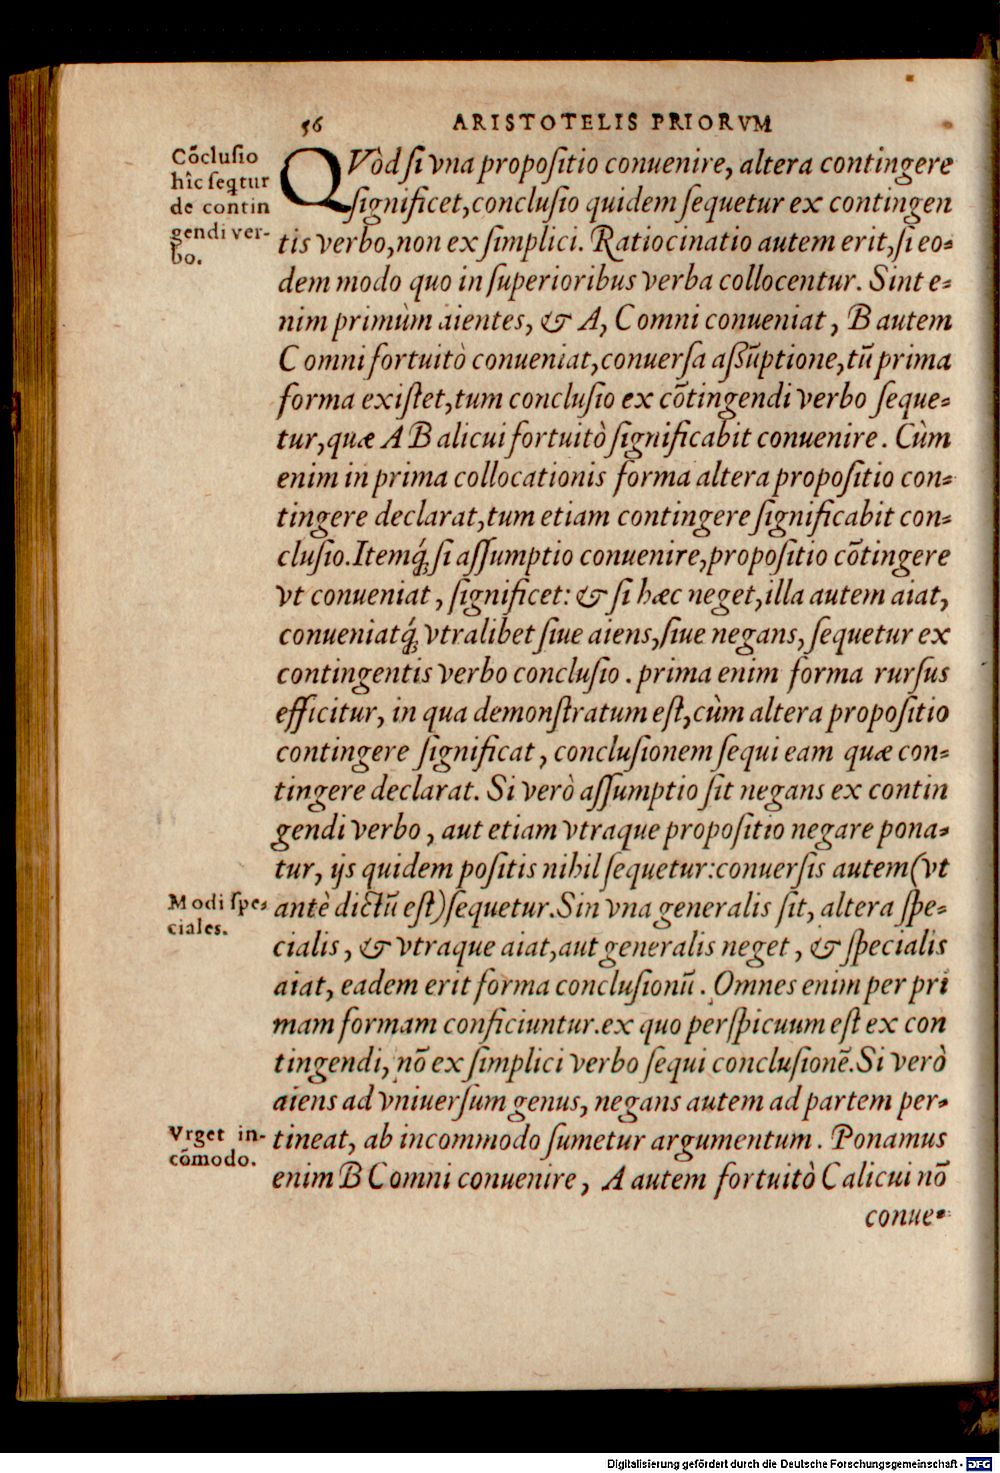 56 ARISTOTELIS PRIORVM
Cōclusio
hîc seqtur
de contin
gendi ver-
bo.
QVòd si vna propositio conuenire, altera contingere
significet, conclusio quidem sequetur ex contingen
tis verbo, non ex simplici. Ratiocinatio autem erit, si eo-
dem modo quo in superioribus verba collocentur. Sint e-
nim primùm aientes, & A, C omni conueniat, B autem
C omni fortuitò conueniat, conuersa assūptione, tū prima
forma existet, tum conclusio ex cōtingendi verbo seque-
tur, quæ A B alicui fortuitò significabit conuenire. Cùm
enim in prima collocationis forma altera propositio con-
tingere declarat, tum etiam contingere significabit con-
clusio. Itemq́; si assumptio conuenire, propositio cōtingere
vt conueniat, significet: & si hæc neget, illa autem aiat,
conueniatq́; vtralibet siue aiens, siue negans, sequetur ex
contingentis verbo conclusio. prima enim forma rursus
efficitur, in qua demonstratum est, cùm altera propositio
contingere significat, conclusionem sequi eam quæ con-
tingere declarat. Si verò assumptio sit negans ex contin
gendi verbo, aut etiam vtraque propositio negare pona-
tur, ijs quidem positis nihil sequetur: conuersis autem (vt
Modi spe-
ciales.
antè dictū est) sequetur. Sin vna generalis sit, altera spe-
cialis, & vtraque aiat, aut generalis neget, & specialis
aiat, eadem erit forma conclusionū. Omnes enim per pri
mam formam conficiuntur. ex quo perspicuum est ex con
tingendi, nō ex simplici verbo sequi conclusionē. Si verò
aiens ad vniuersum genus, negans autem ad partem per-
Vrget in-
cōmodo.
tineat, ab incommodo sumetur argumentum. Ponamus
enim B C omni conuenire, A autem fortuitò C alicui nō
conue-
Digitalisierung gefördert durch die Deutsche Forschungsgemeinschaft - DFG